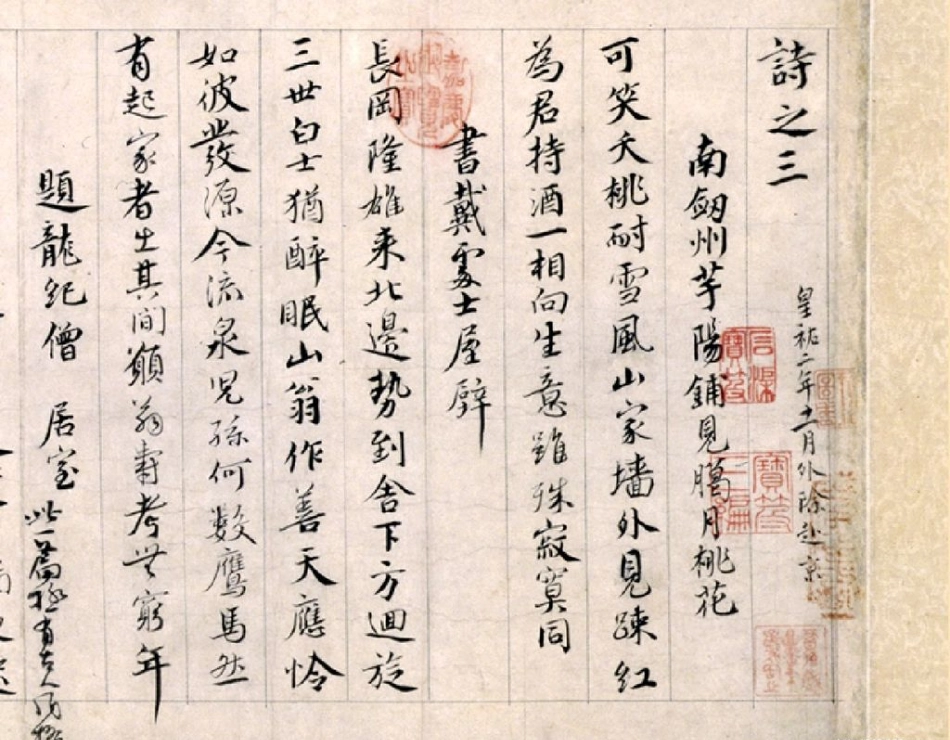 詩之三
皇祐二年十一月外除赴京
南劔州芋陽鋪見臘月桃花
可笑夭桃耐雪風山家墻外見疎紅
為君持酒一相向生意雖殊寂寞同
書戴處士屋壁
長岡隆雄來北邊勢到舍下方迴旋
三世白士猶醉眠山翁作善天應怜
如彼發源今流泉兒孫何數鴈馬然
有起家者出其間願翁壽考無窮年
題龍紀僧居室
此一篇極有古人風格